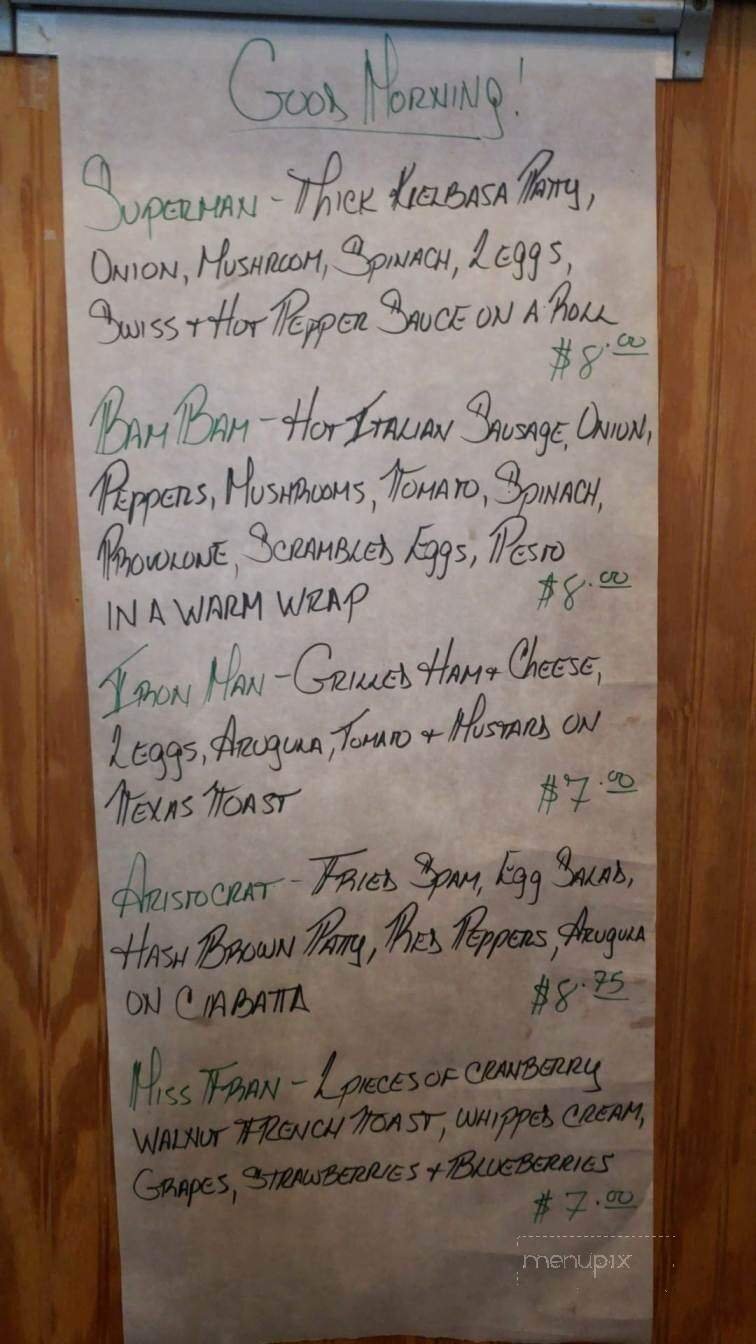 GOOD MORNING!
SUPERMAN - THICK KIELBASA PATTY,
ONION, MUSHROOM, SPINACH, 2 EGGS,
SWISS + HOT PEPPER SAUCE ON A ROLL
$8.00
BAM BAM - HOT ITALIAN SAUSAGE, ONION,
PEPPERS, MUSHROOMS, TOMATO, SPINACH,
PROVOLONE, SCRAMBLED EGGS, PESTO
IN A WARM WRAP $8.00
IRON MAN - GRILLED HAM + CHEESE,
2 EGGS, ARUGULA, TOMATO + MUSTARD ON
TEXAS TOAST $7.00
ARISTOCRAT - FRIED SPAM, EGG SALAD,
HASH BROWN PATTY, RED PEPPERS, ARUGULA
ON CIABATTA $8.75
MISS FRAN - 2 PIECES OF CRANBERRY
WALNUT FRENCH TOAST, WHIPPED CREAM,
GRAPES, STRAWBERRIES + BLUEBERRIES
$7.00
menupix